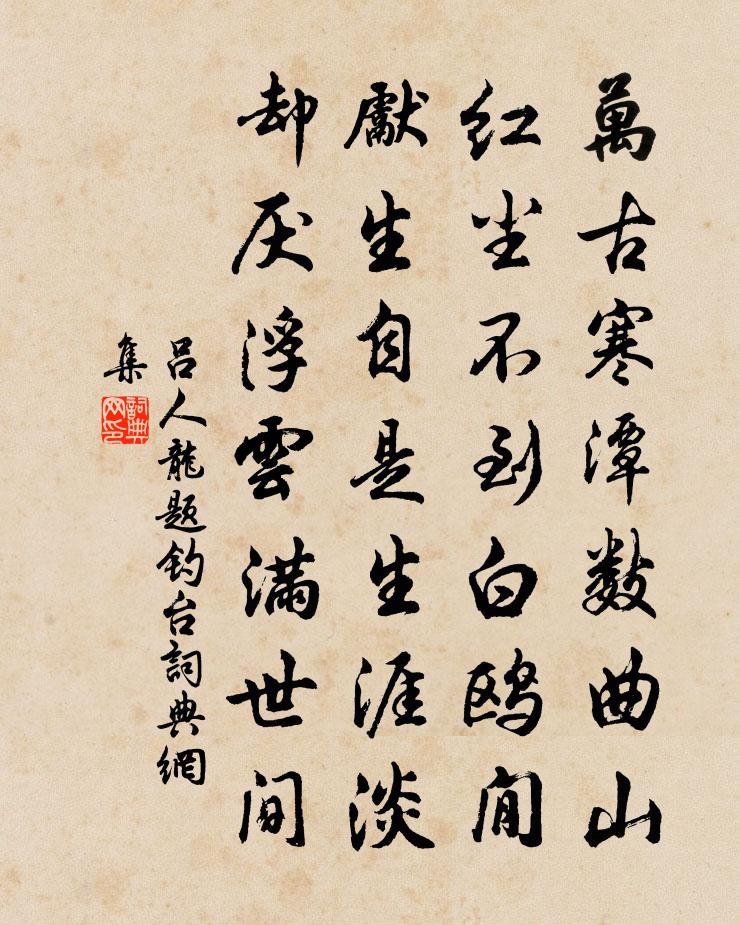 萬古寒潭數曲山
红尘不到白鸥閒
獻生自是生涯淡
却厌浮雲满世間
吕人龍题钓台詞典網
集
詞典
网印